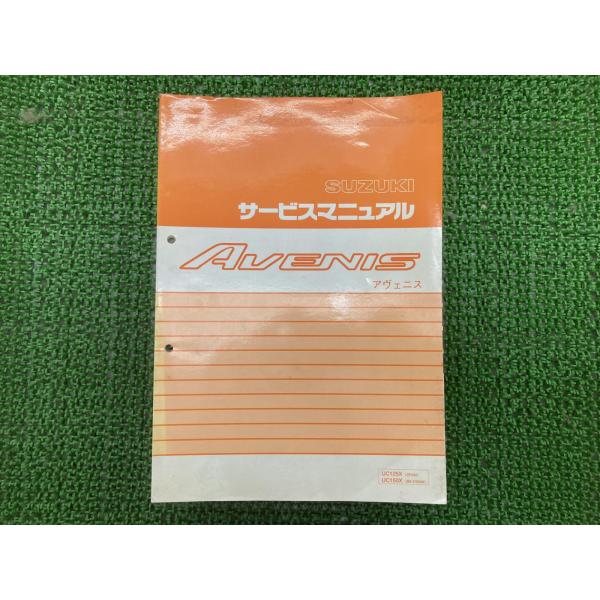 SUZUKI
サービスマニュアル
AVENIS
アヴェニス
UC125X
UC150X